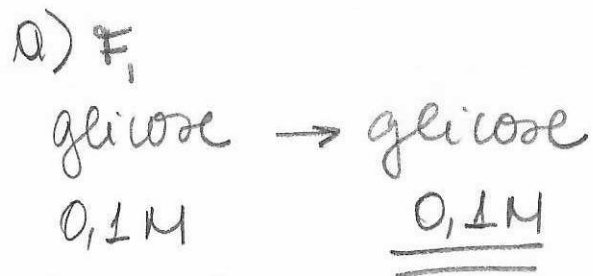 a) F₁
glicose → glicose
0,1M 0,1M